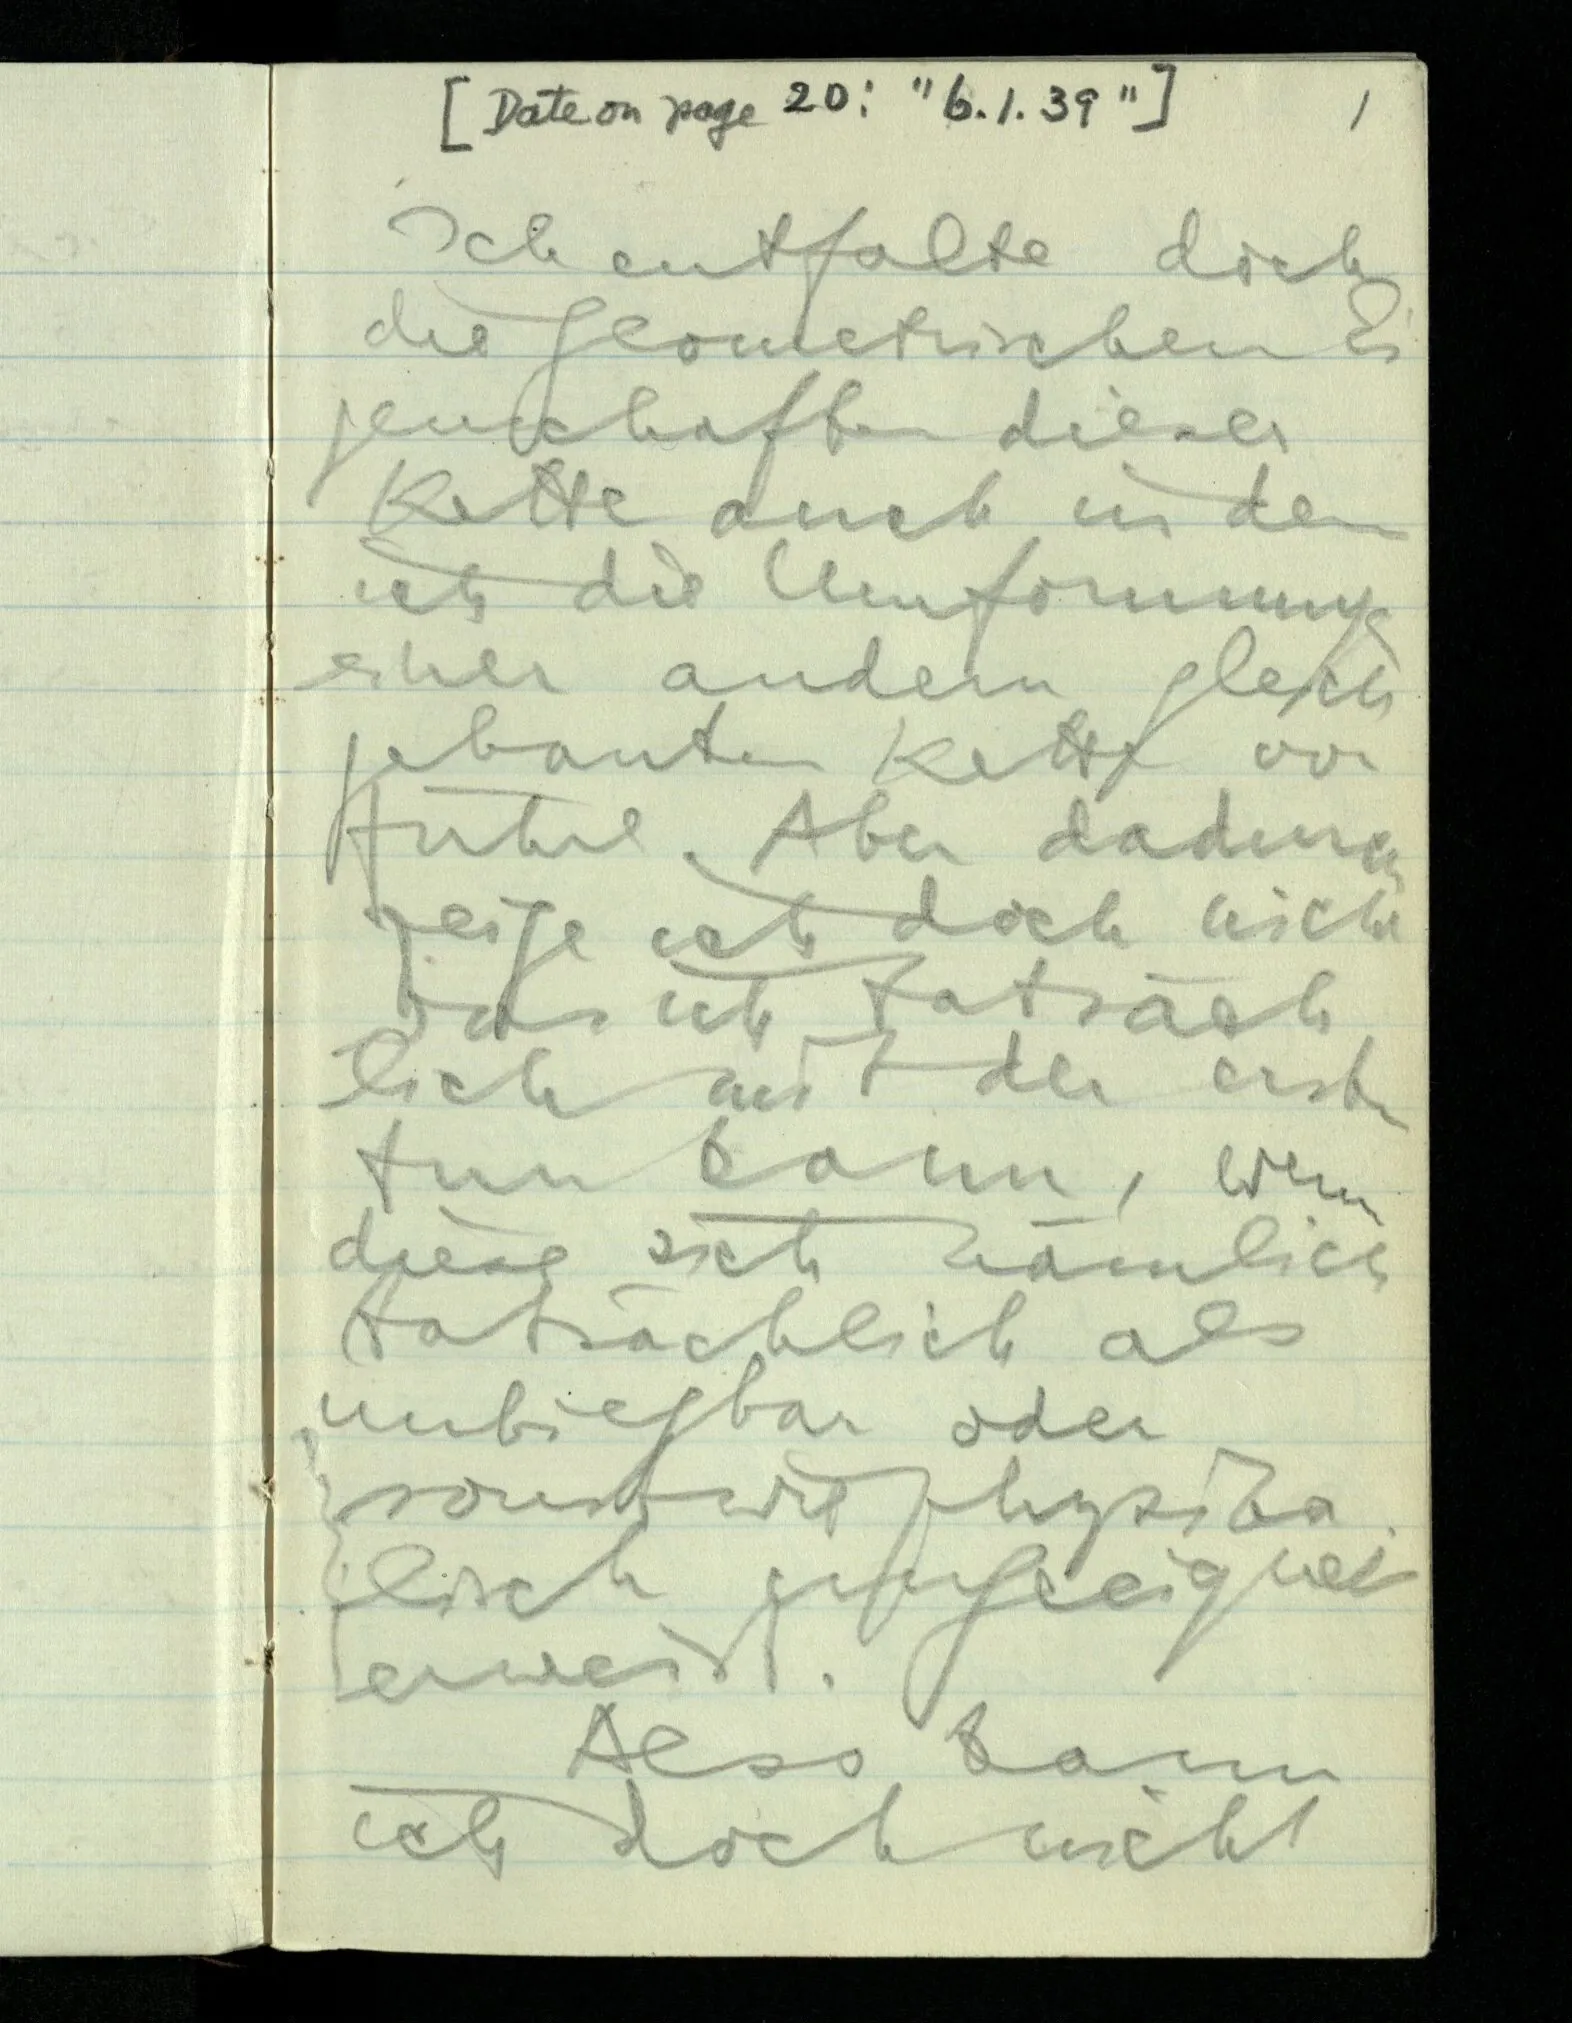 [Date on page 20: "6.1.39"] 1
Ich entfalte doch
die geometrischen Ei
genschaften dieser
Kette auch indem
ich die Umformung
einer andern gleich
gebauten Kette vor
führe. Aber dadurch
zeige ich doch nicht
was ich tatsäch
lich mit der ersten
tun kann, wenn
diese sich nämlich
tatsächlich als
unbiegbar oder
sonstwie physika
lisch ungeeignet
erweist.
Also kann
ich doch nicht